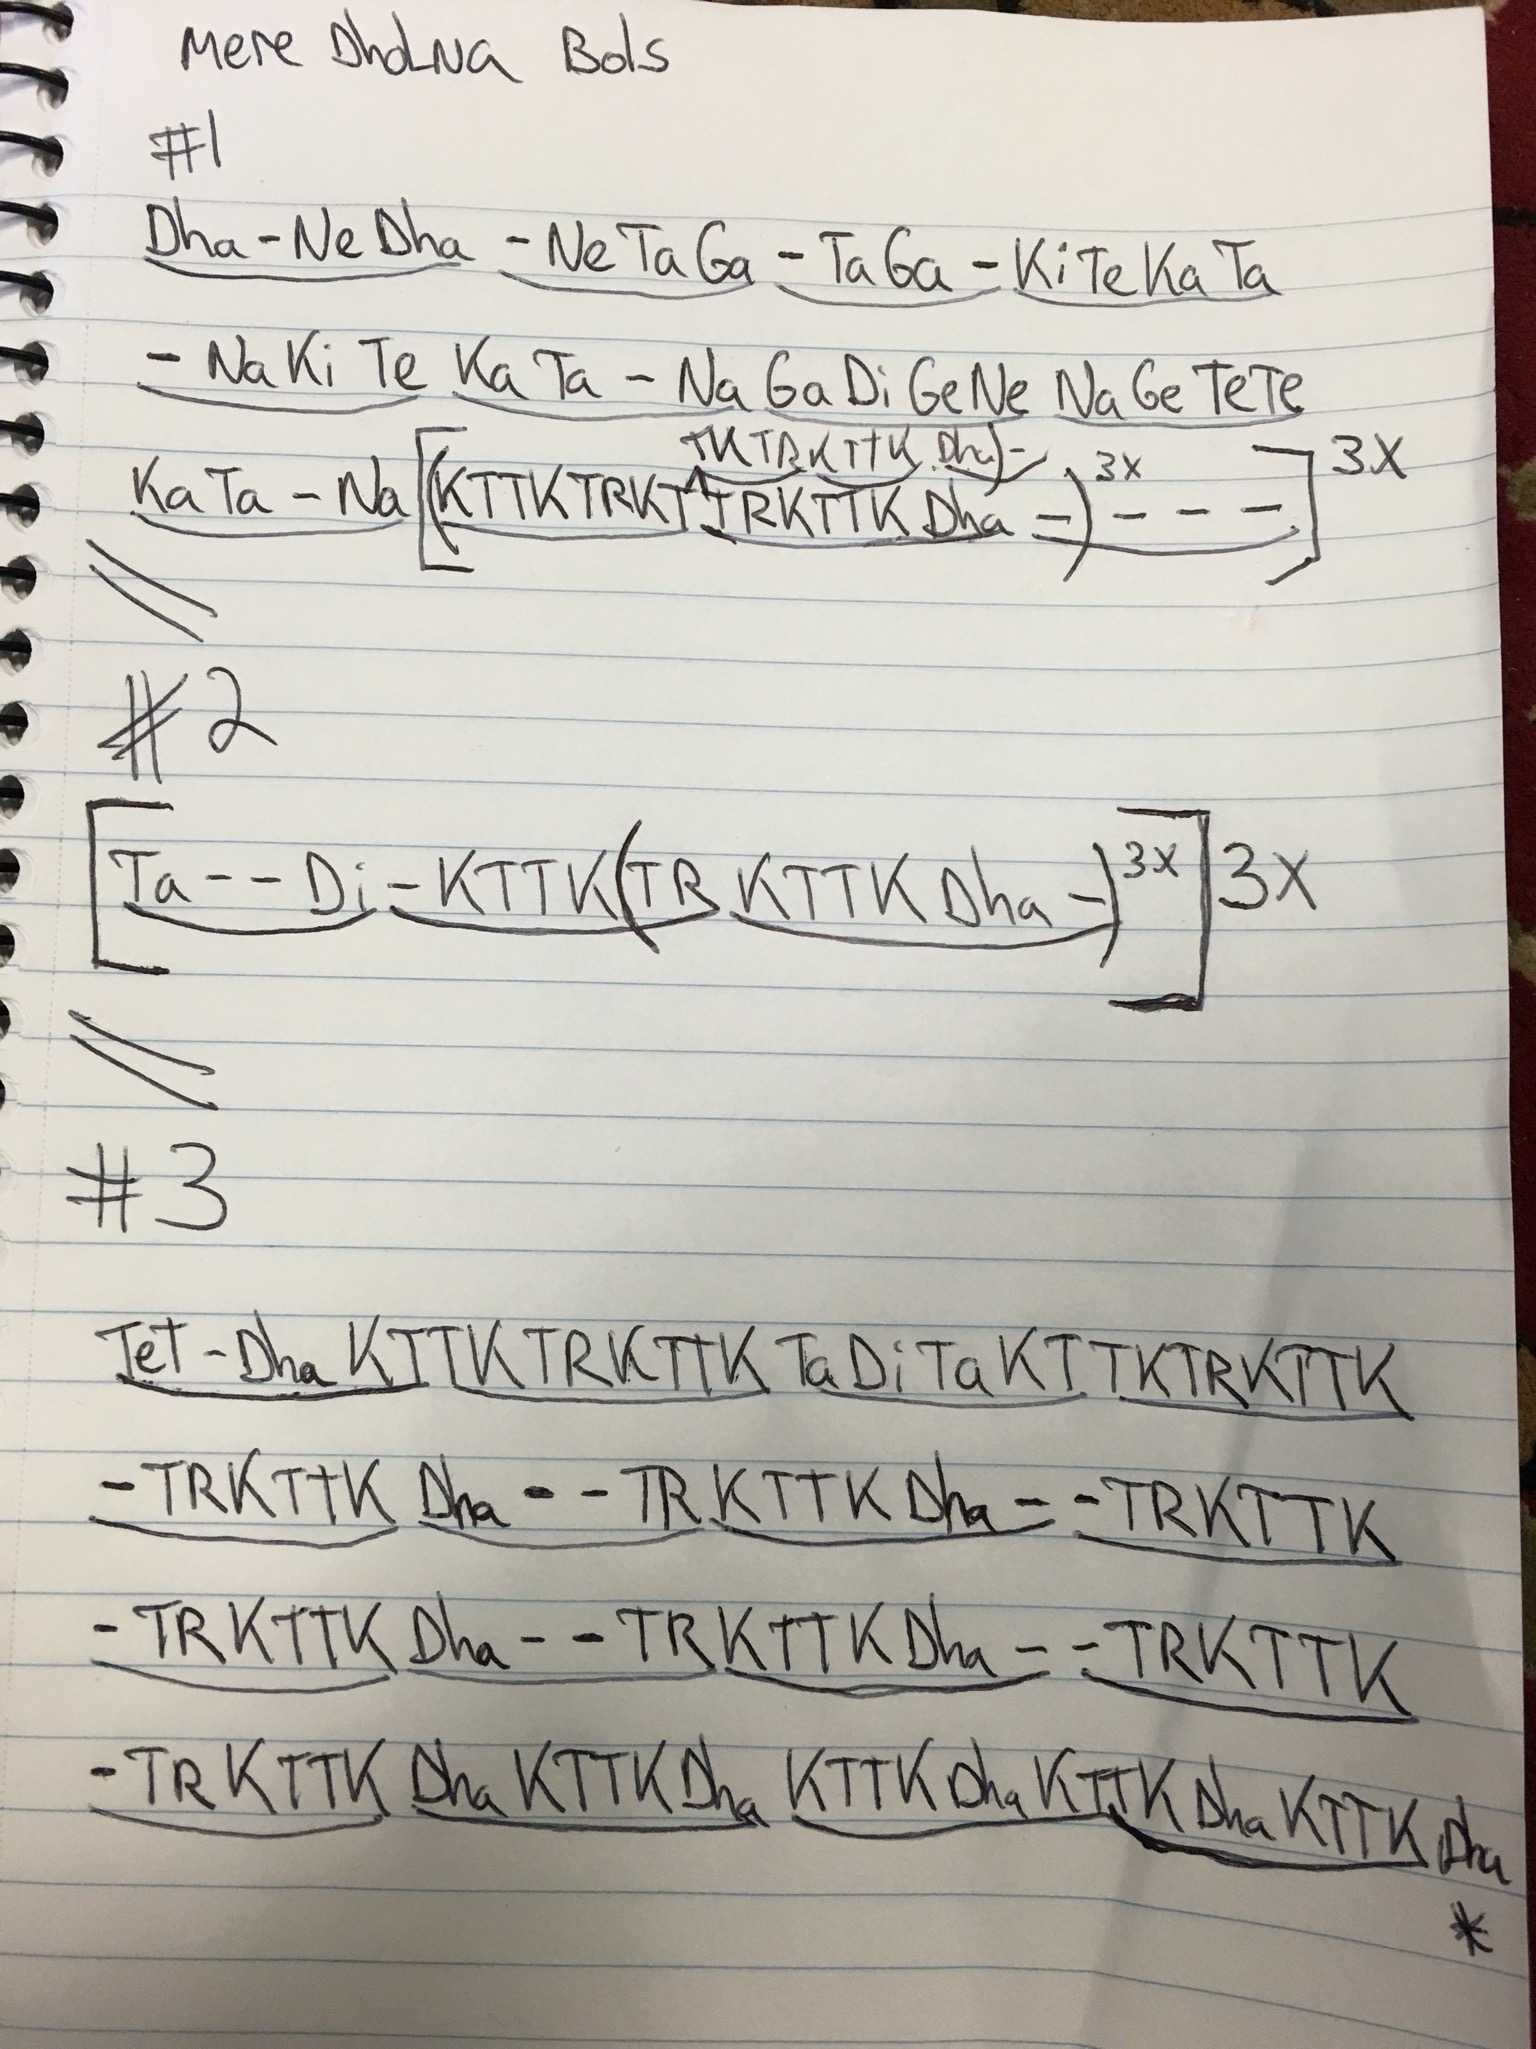 Mere Dholna Bols
#1
Dha - Ne Dha - Ne Ta Ga - Ta Ga - Ki Te Ka Ta
- Na Ki Te Ka Ta - Na Ga Di Ge Ne Na Ge Te Te
TKTRKTTK Dha) -
Ka Ta - Na [(KTTKTRKT^TRKTTK Dha -)3x - - -] 3x
#2
[Ta - - Di - KTTK (TR KTTK Dha -)3x] 3x
#3
Tet - Dha KTTKTRKTTK Ta Di Ta KTTKTRKTTK
- TRKTTK Dha - - TRKTTK Dha - - TRKTTK
- TRKTTK Dha - - TRKTTK Dha - - TRKTTK
- TRKTTK Dha KTTK Dha KTTK Dha KTTK Dha KTTK Dha
*